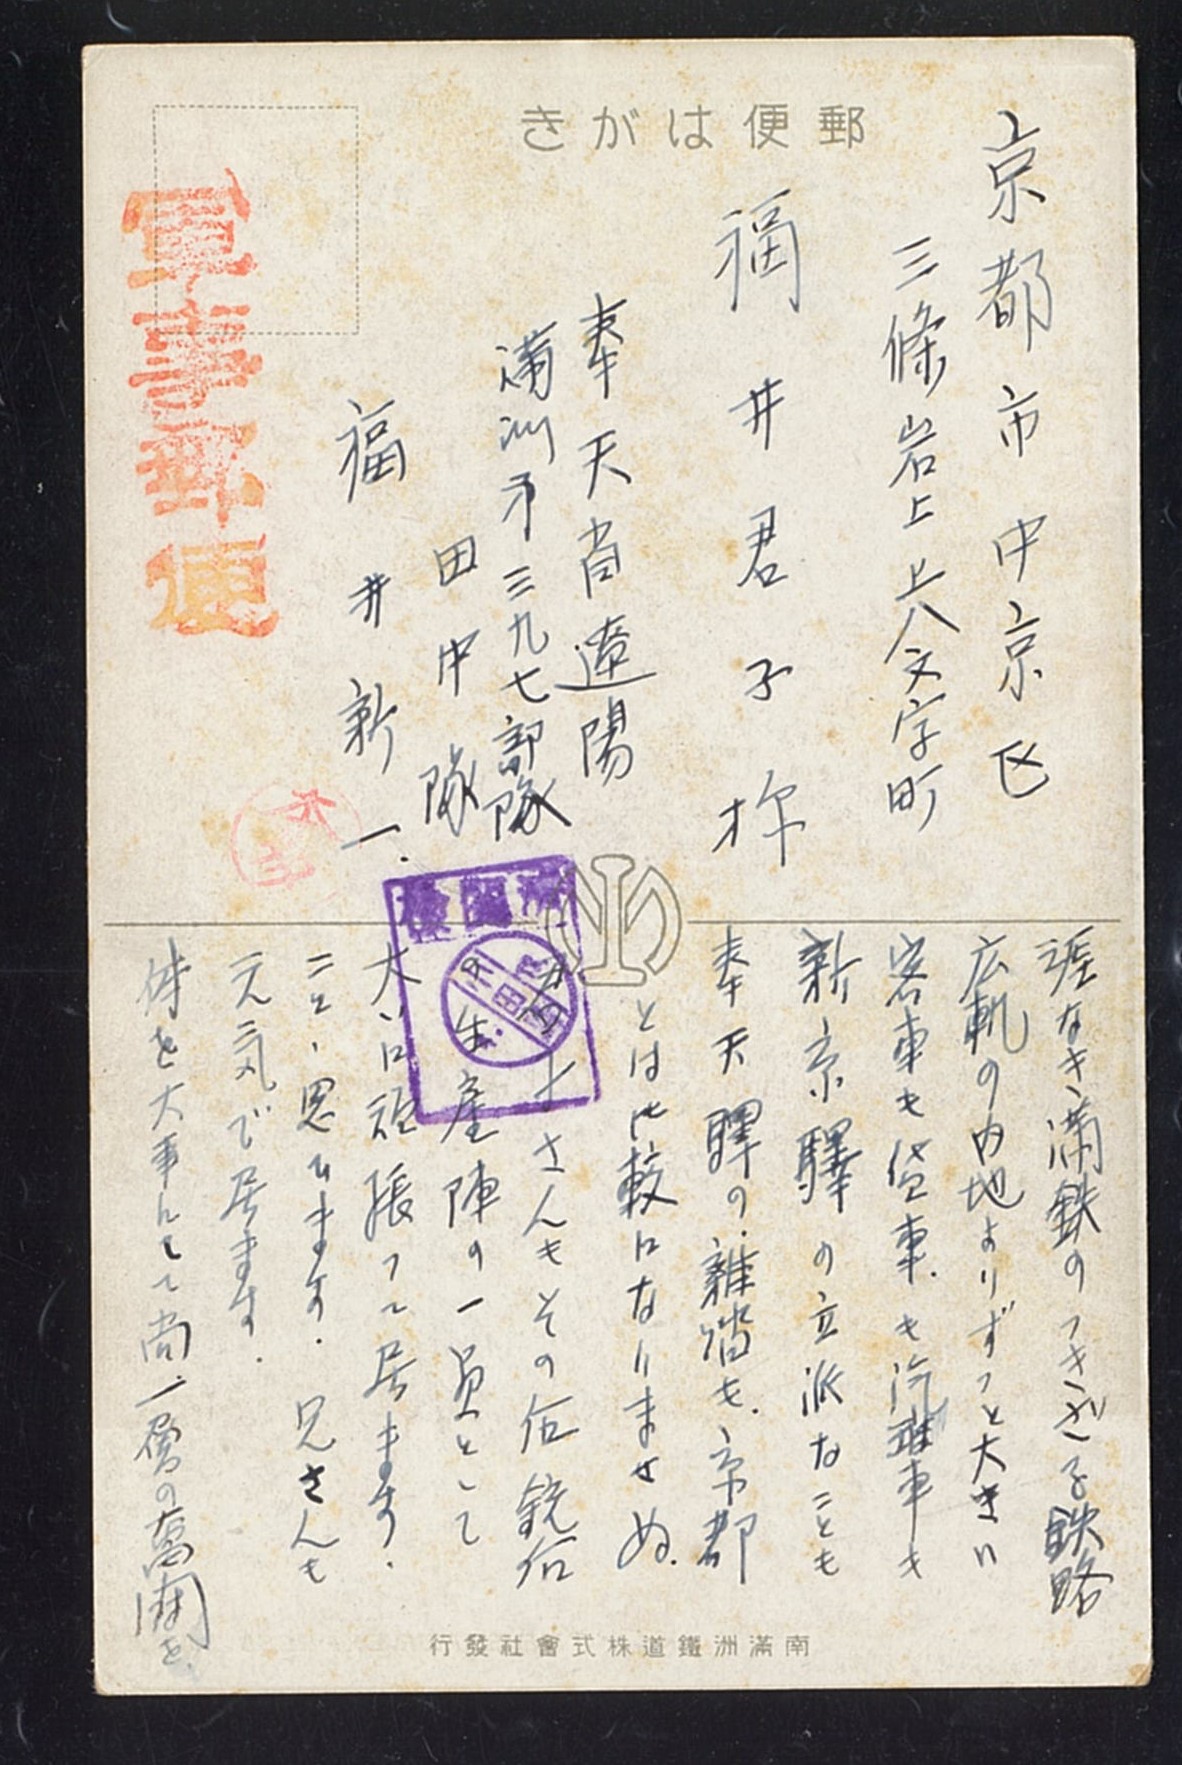 郵便はがき
京都市中京区
三條岩上上八文字町
福井君子様
奉天省遼陽
満洲第三九七部隊
田中隊
福井新一
軍事郵便
涯なき満鉄のつきざる鉄路
広軌の内地よりずっと大きい
客車も貨車も汽罐車も
新京驛の立派なことも
奉天驛の雑踏も京都
とは比較になりませぬ
さんもその后銃后
生産陣の一員として
大いに頑張って居ます
ことゝ思ひます 兄さんも
元気で居ます
体を大事にして尚一層の奮闘を
南滿洲鐵道株式會社發行